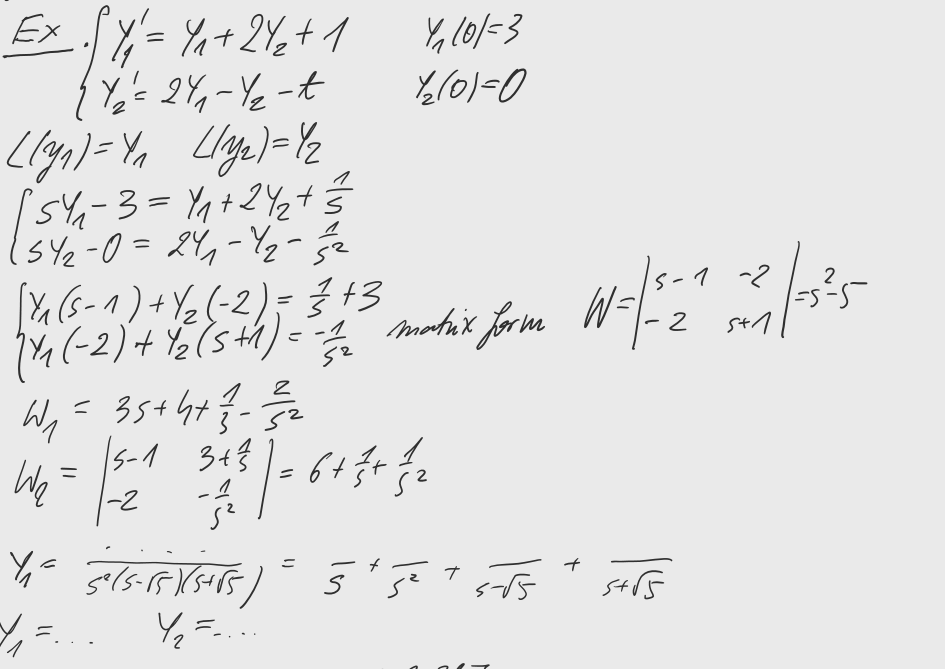 Ex . { Y₁' = Y₁ + 2Y₂ + 1 Y₁(0)=3
Y₂' = 2Y₁ - Y₂ - t Y₂(0)=0
L(y₁) = Y₁ L(y₂) = Y₂
{ sY₁ - 3 = Y₁ + 2Y₂ + 1/s
sY₂ - 0 = 2Y₁ - Y₂ - 1/s²
{ Y₁(s-1) + Y₂(-2) = 1/s + 3
Y₁(-2) + Y₂(s+1) = -1/s² matrix form W = | s-1 -2 | = s² - 5
| -2 s+1 |
W₁ = 3s + 4 + 1/s - 2/s²
W₂ = | s-1 3+1/s | = 6 + 1/s + 1/s²
| -2 -1/s² |
Y₁ = .... / s²(s-√5)(s+√5) = /s + /s² + /(s-√5) + /(s+√5)
Y₁ = .... Y₂ = ....